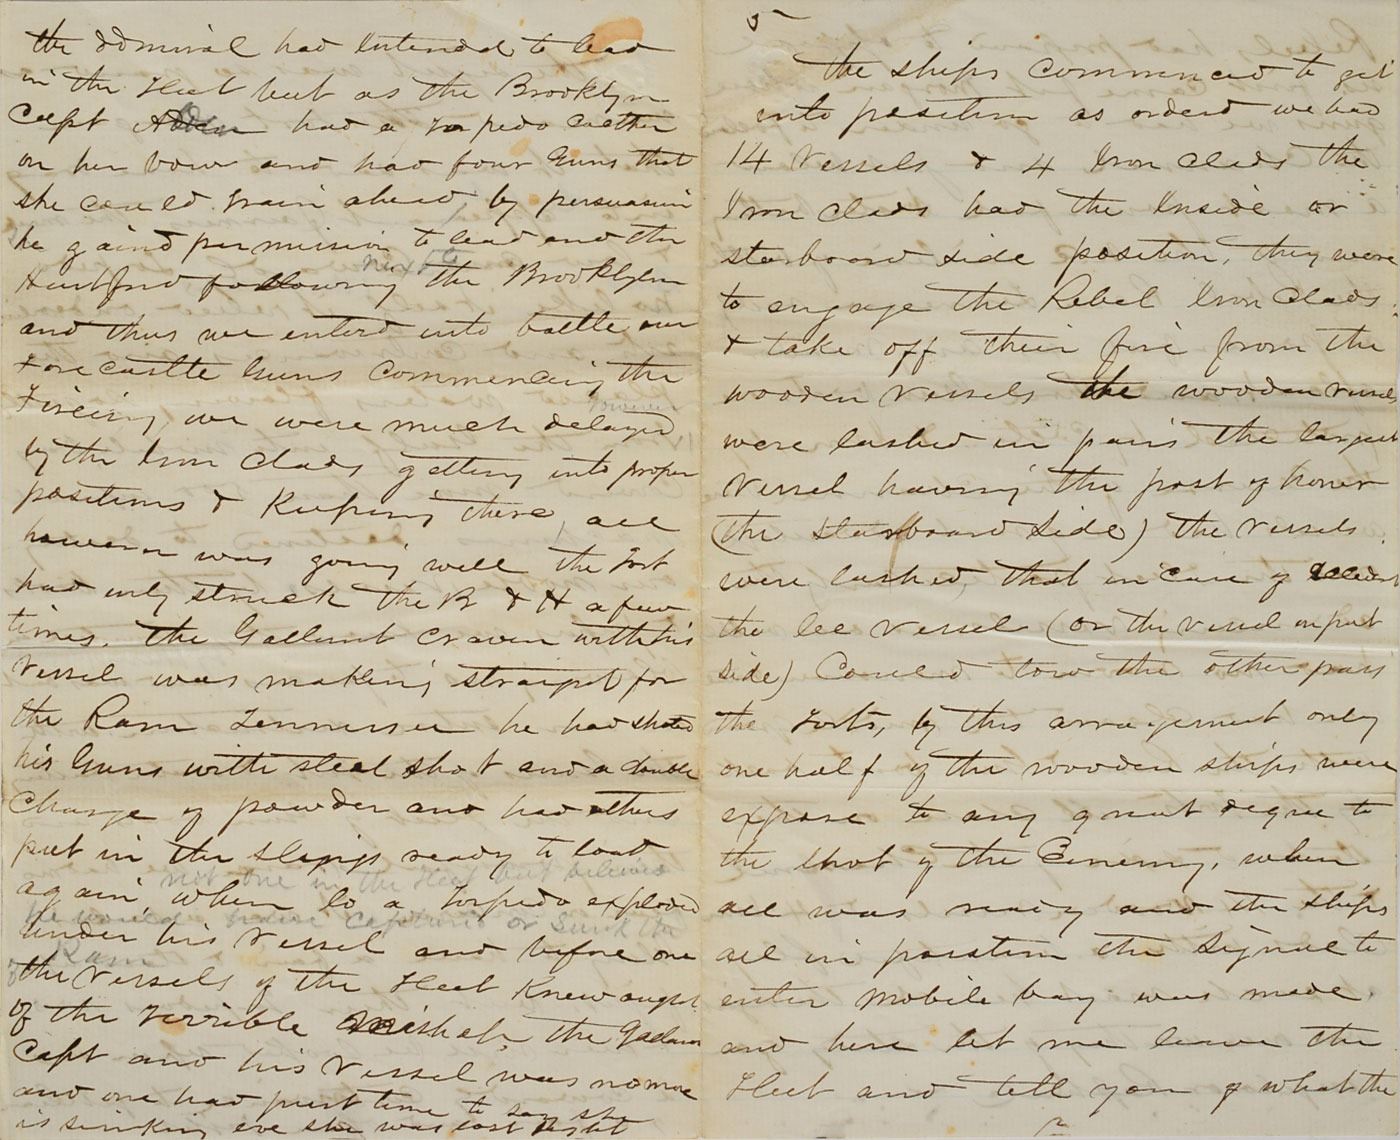 the admiral had intended to lead
in the Fleet but as the Brooklyn
Capt Alden had a Torpedo Catcher
on her bow and had four Guns that
she could train ahead, by persuasion
he gaind permission to lead and the
next to
Hartford following the Brooklyn
and thus we enterd into battle our
Forecastle Guns Commencing the
Fireing, we were much delayed
however
by the Iron Clads getting into proper
positions & Keeping there, all
however was going well the Fort
had only struck the B & H a few
times. The Gallant Craven with his
Vessel was making straight for
the Ram Tennessee he had shoted
his Guns with steel shot and a double
Charge of powder and had others
put in the slings ready to load
not one in the Fleet but believes
again, when lo a Torpedo exploded
he would have Captured or Sunk the
Ram
under his Vessel and before one
the Vessels of the Fleet Knew aught
of the Terrible mishap, the Gallant
Capt and his Vessel was no more
and one had just time to say she
is sinking ere she was lost sight
5
The ships Commenced to get
into position as orderd we had
14 Vessels & 4 Iron Clads the
Iron Clads had the Inside or
starboard side position, they were
to engage the Rebel Iron Clads
& take off their fire from the
wooden Vessels the wooden vessels
were lashed in pairs the largest
Vessel having the post of honor
(the starboard side) the vessels
were lashed, that in case of accident
the lee vessel (or the vessel on port
side) Could tow the other pass
the Forts, by this arrangement only
one half of the wooden ships were
expose to any great degree to
the shot of the Enemy, when
all was ready and the ships
all in position the signal to
enter Mobile bay was made.
and here let me leave the
Fleet and tell you of what the